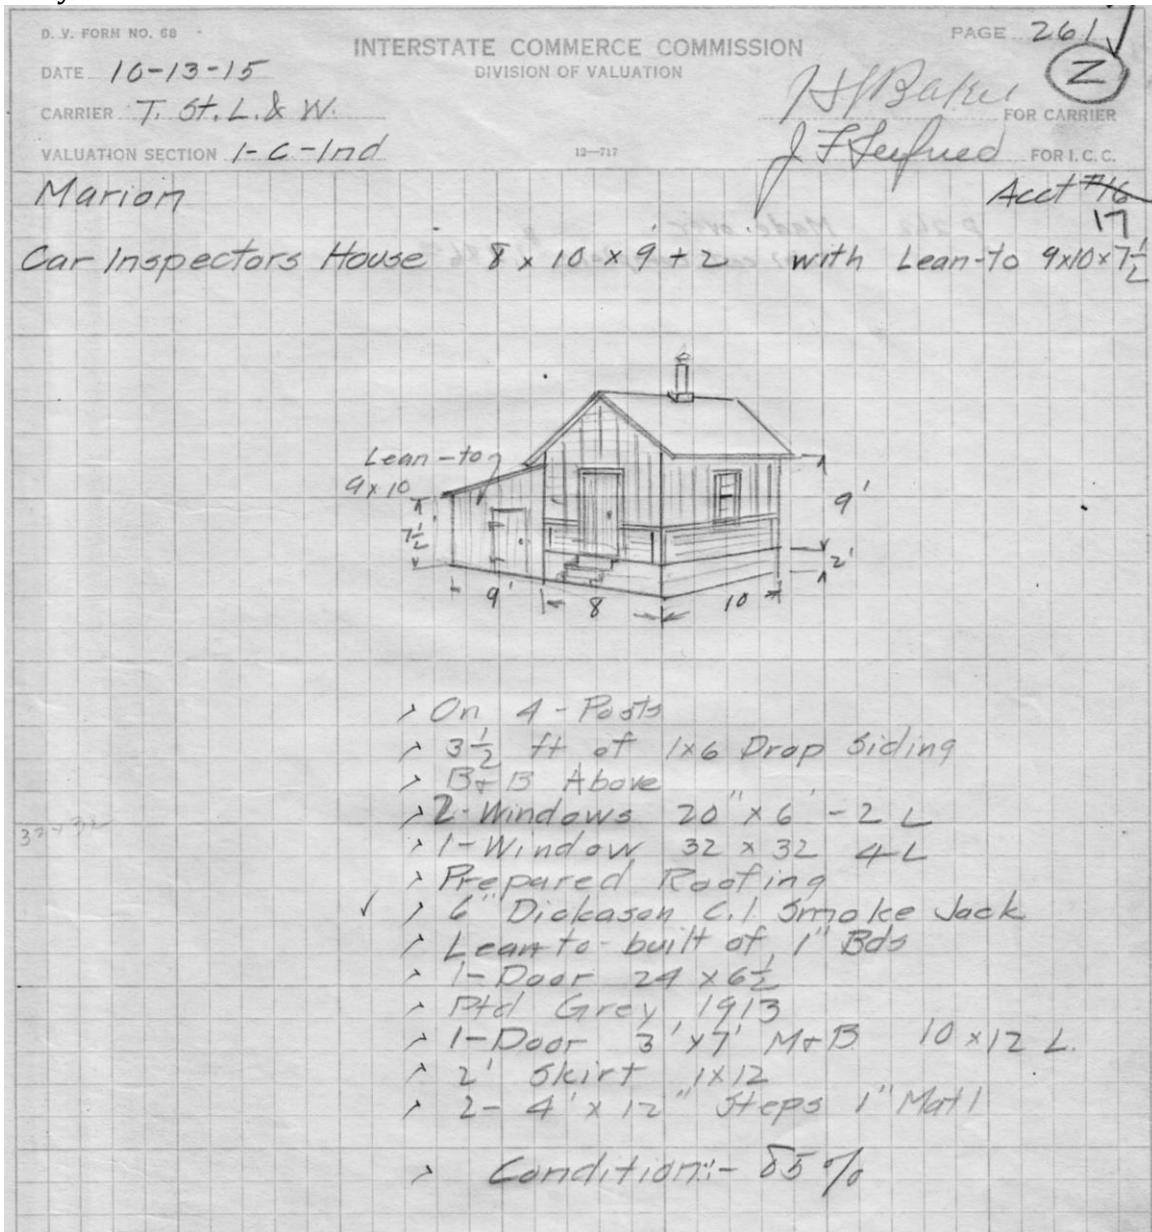 D. V. FORM NO. 68
PAGE 261
INTERSTATE COMMERCE COMMISSION
Z
DATE 10-13-15
DIVISION OF VALUATION
CARRIER T. St. L. & W.
H J Baker FOR CARRIER
VALUATION SECTION 1-C-Ind
12—717
J F FOR I. C. C.
Marion
Acct #16
17
Car Inspectors House 8 x 10 x 9 + 2 with Lean-to 9x10x7½
Lean-to
9 x 10
7½
9'
2'
9'
8
10
On 4 - Posts
3½ ft of 1x6 Drop Siding
B & B Above
2-Windows 20" x 6' - 2 L
1-Window 32 x 32 4 L
32 x 32
Prepared Roofing
✓ 6" Dickason C.I. Smoke Jack
Lean to - built of 1" Bds
1-Door 24 x 6½
Ptd Grey 1913
1-Door 3' x 7' M & B 10 x 12 L.
2' Skirt 1x12
2- 4' x 12" Steps 1" Matl
Condition:- 85 %